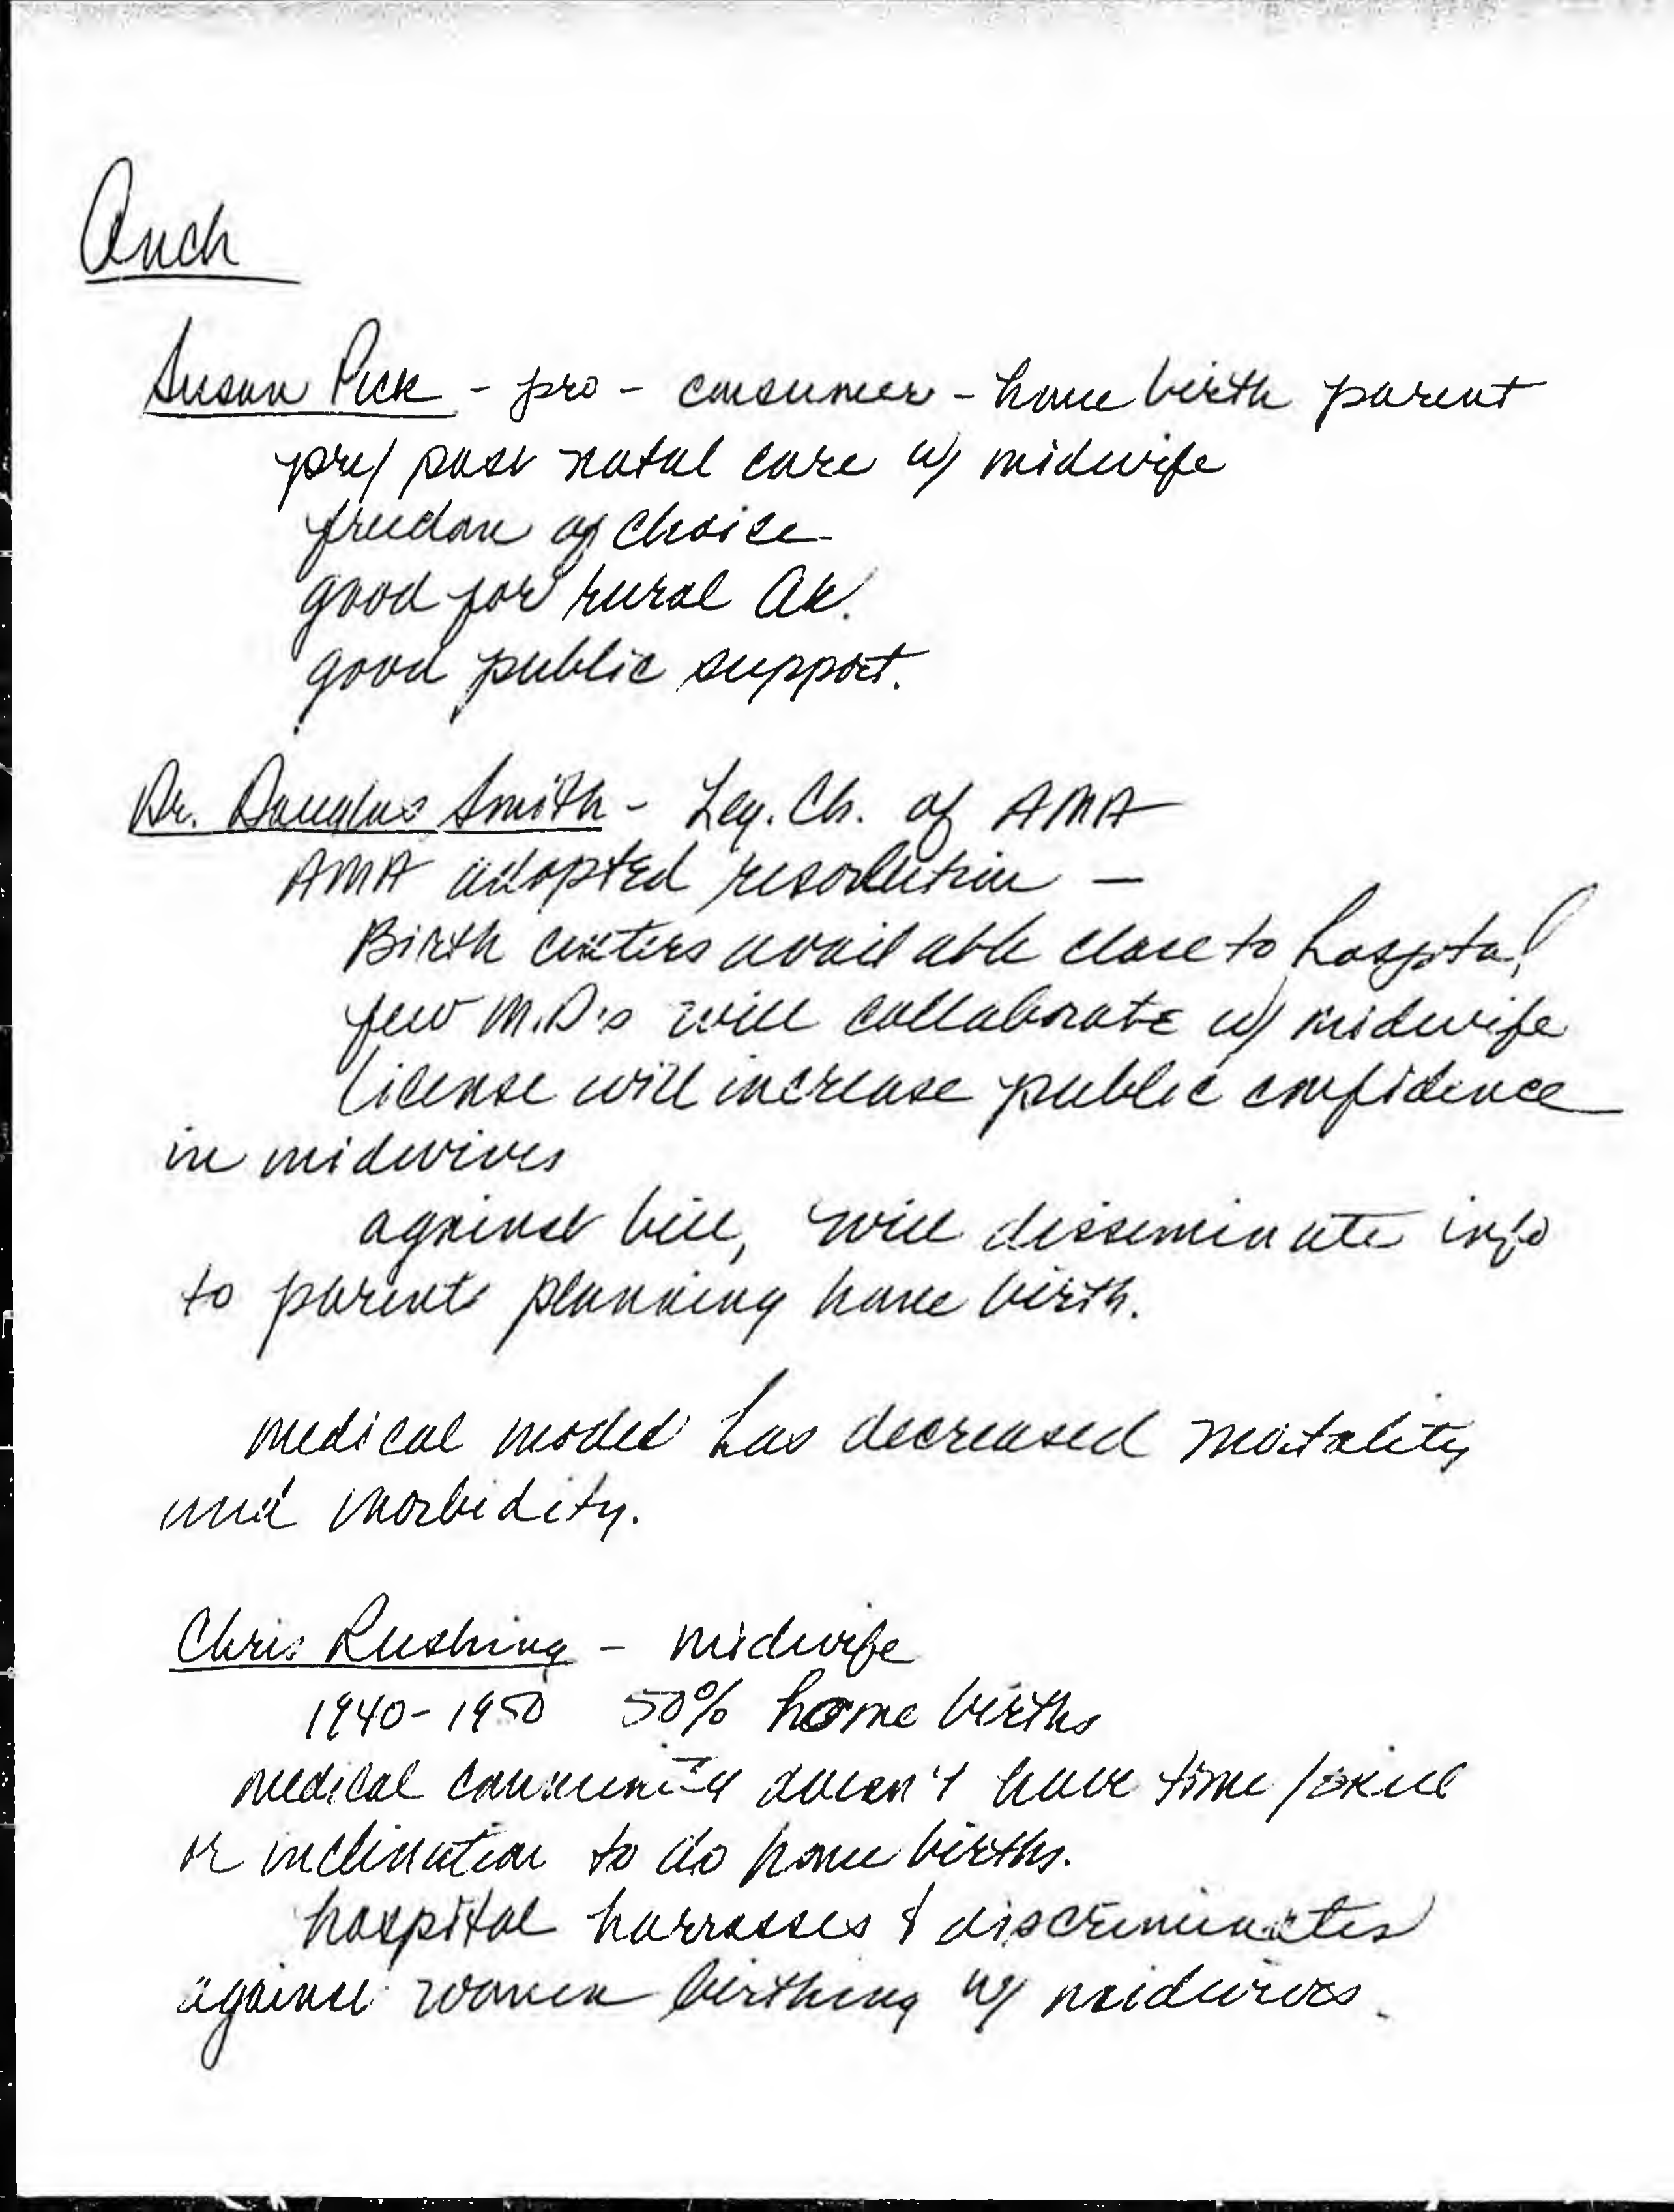 Anch
Susan Pick - pro - consumer - home birth parent
pre/ post natal care w/ midwife
freedom of choice
good for rural Ak.
good public support.
Dr. Douglas Smith - Leg. Ch. of AMA
AMA adopted resolution —
Birth centers available close to hospital
few M.D.'s will collaborate w/ midwife
license will increase public confidence
in midwives
against bill, will disseminate info
to parents planning home birth.
medical model has decreased mortality
and morbidity.
Chris Rushing - midwife
1940-1950 50% home births
medical community doesn't have time/skill
or inclination to do home births.
hospital harrasses & discriminates
against women birthing w/ midwives.